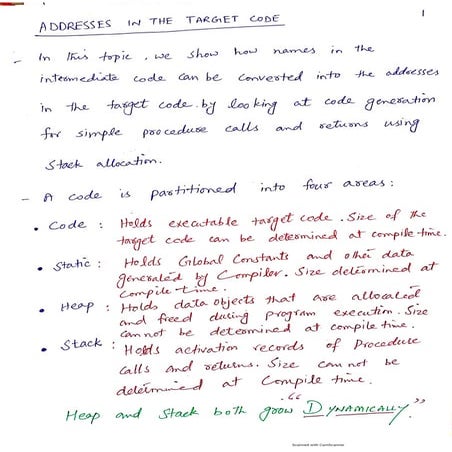 ADDRESSES IN THE TARGET CODE
1
- In this topic, we show how names in the
intermediate code can be converted into the addresses
in the target code by looking at code generation
for simple procedure calls and returns using
Stack allocation.
- A code is partitioned into four areas :
• Code : Holds executable target code. Size of the
target code can be determined at compile time.
• Static : Holds Global Constants and other data
generated by Compiler. Size determined at
Compile time.
• Heap : Holds data objects that are allocated
and freed during program execution. Size
cannot be determined at compile time.
• Stack : Holds activation records of Procedure
Calls and returns. Size can not be
determined at Compile time.
Heap and Stack both grow "DYNAMICALLY"
Scanned with CamScanner